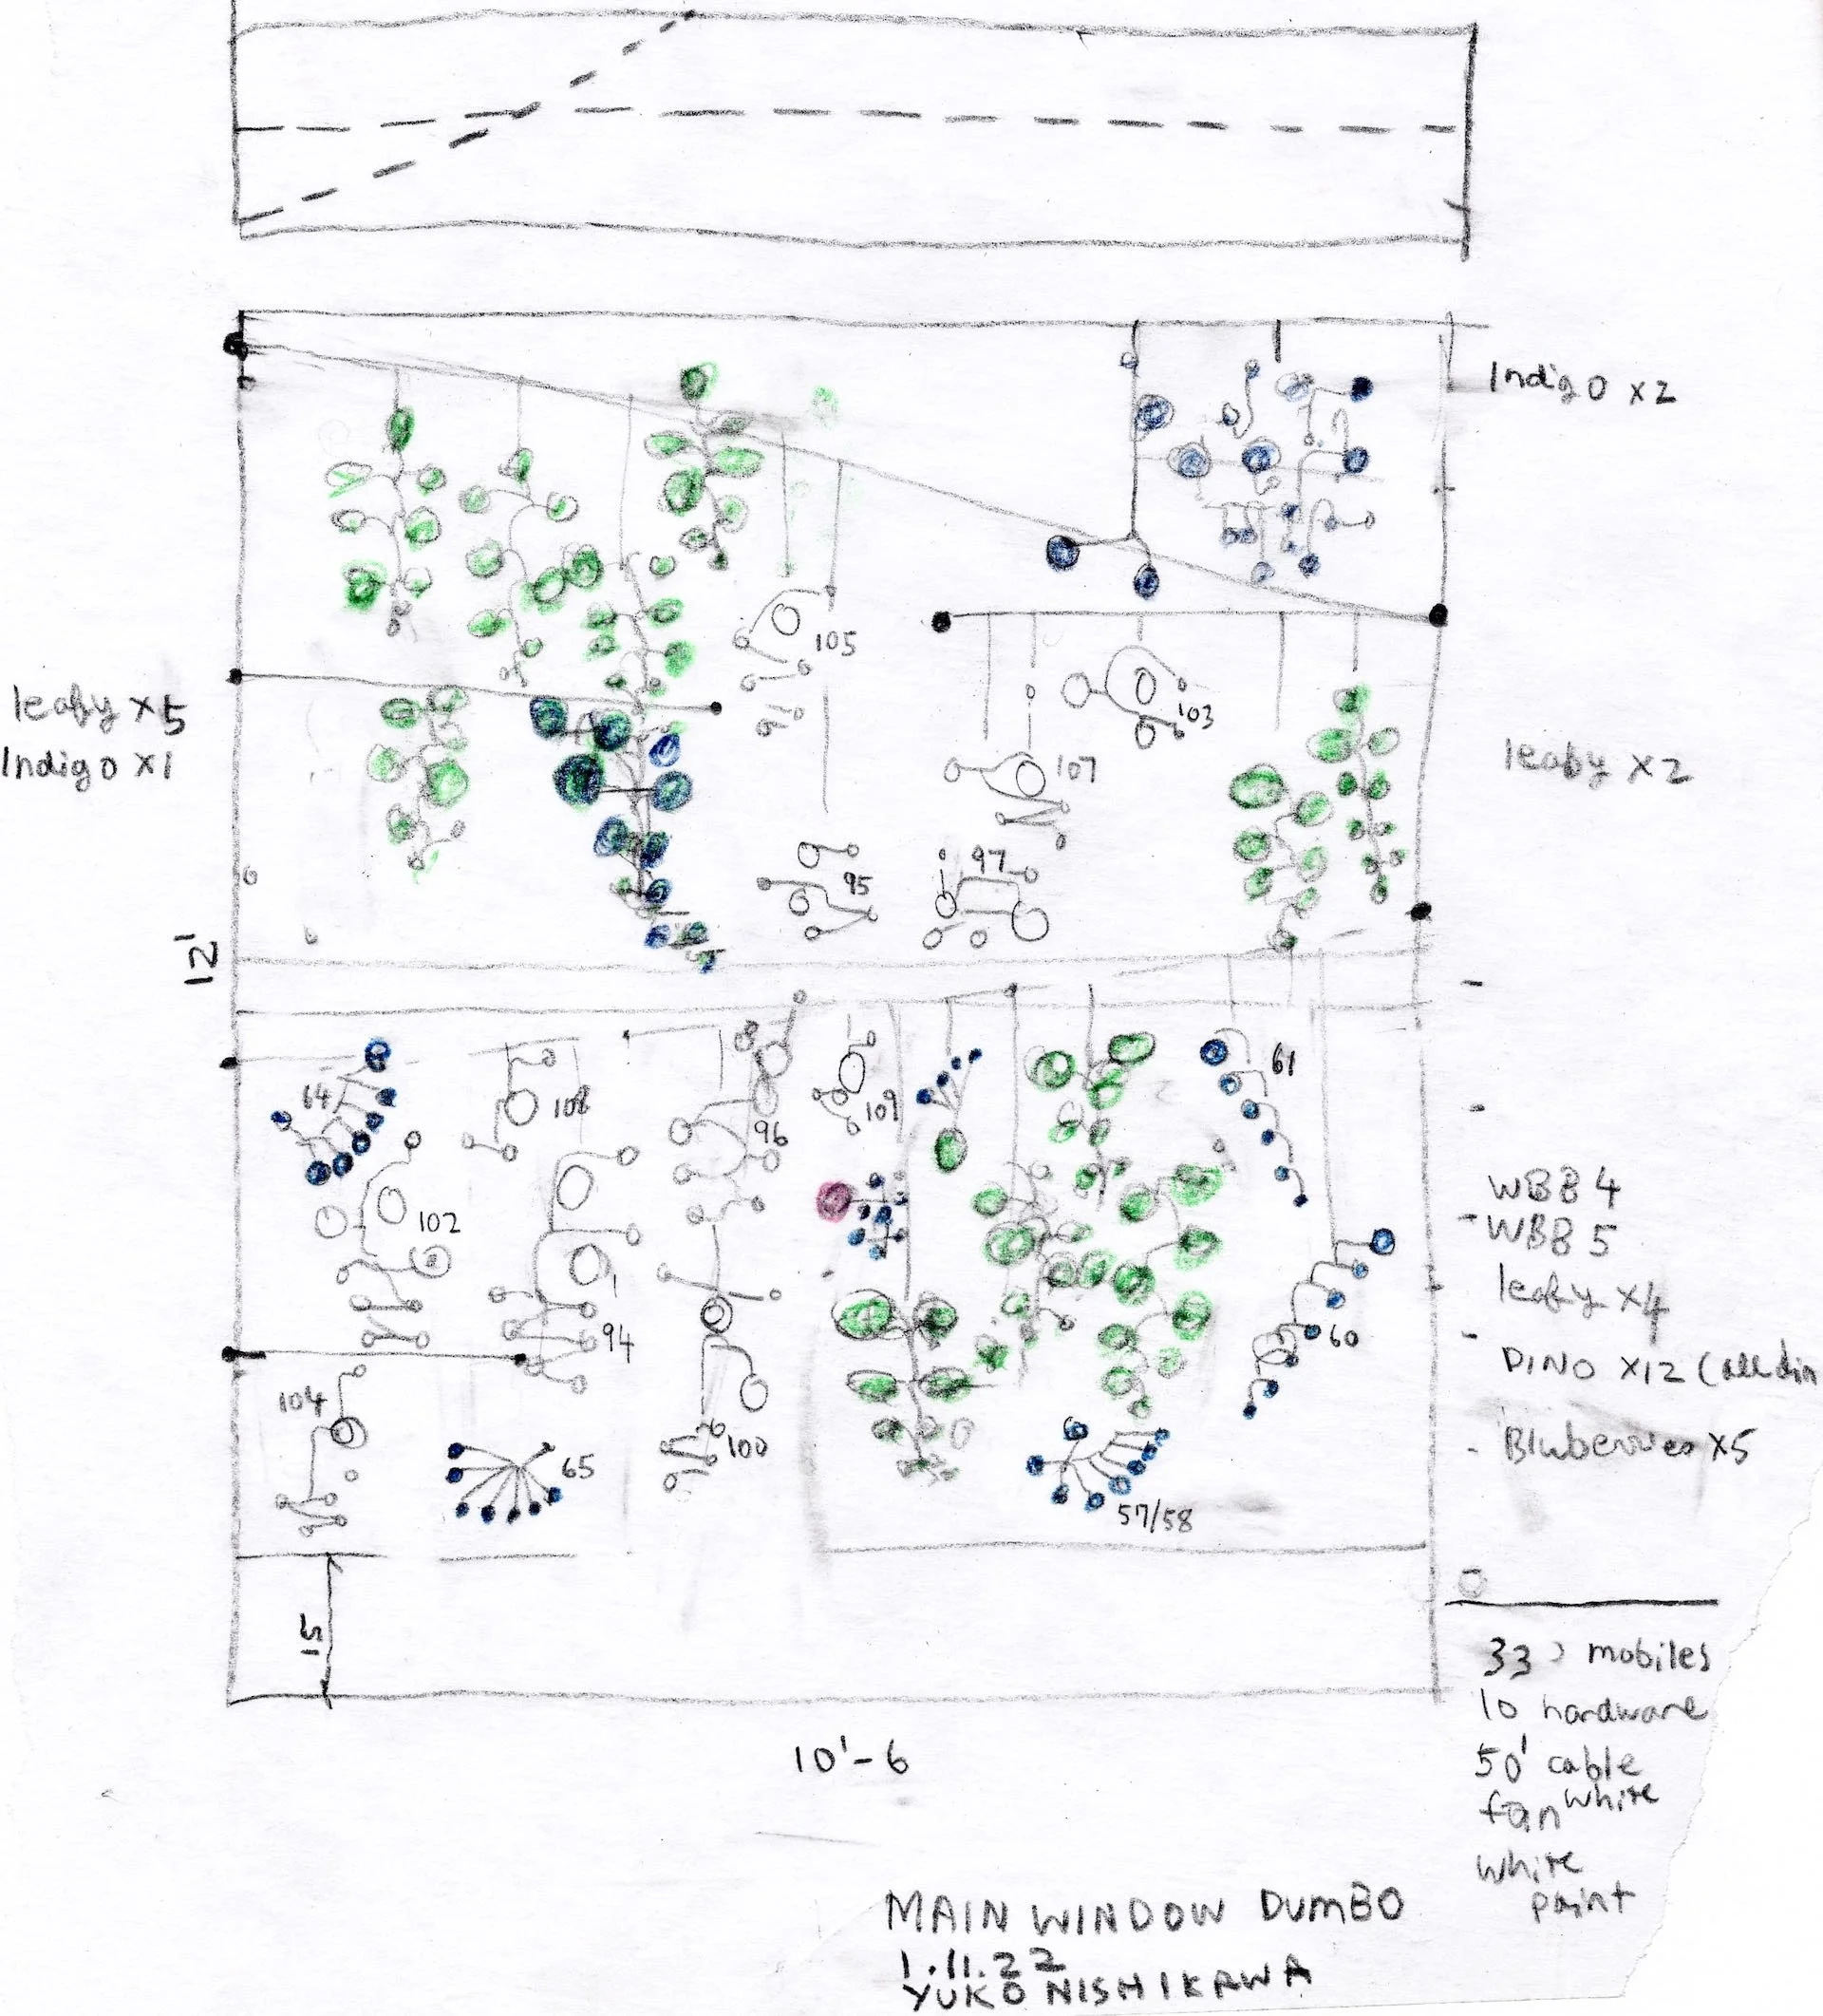 Indigo x2
105
103
leafy x5
Indigo x1
107
leafy x2
97
95
12'
61
64
108
109
96
102
WBB 4
WBB 5
leafy x4
60
94
DINO x12 (all din
104
100
Bluberries x5
65
57/58
15
33 mobiles
10 hardware
50' cable
fan white
white
paint
10'-6
MAIN WINDOW DUMBO
1.11.22
YUKO NISHIKAWA